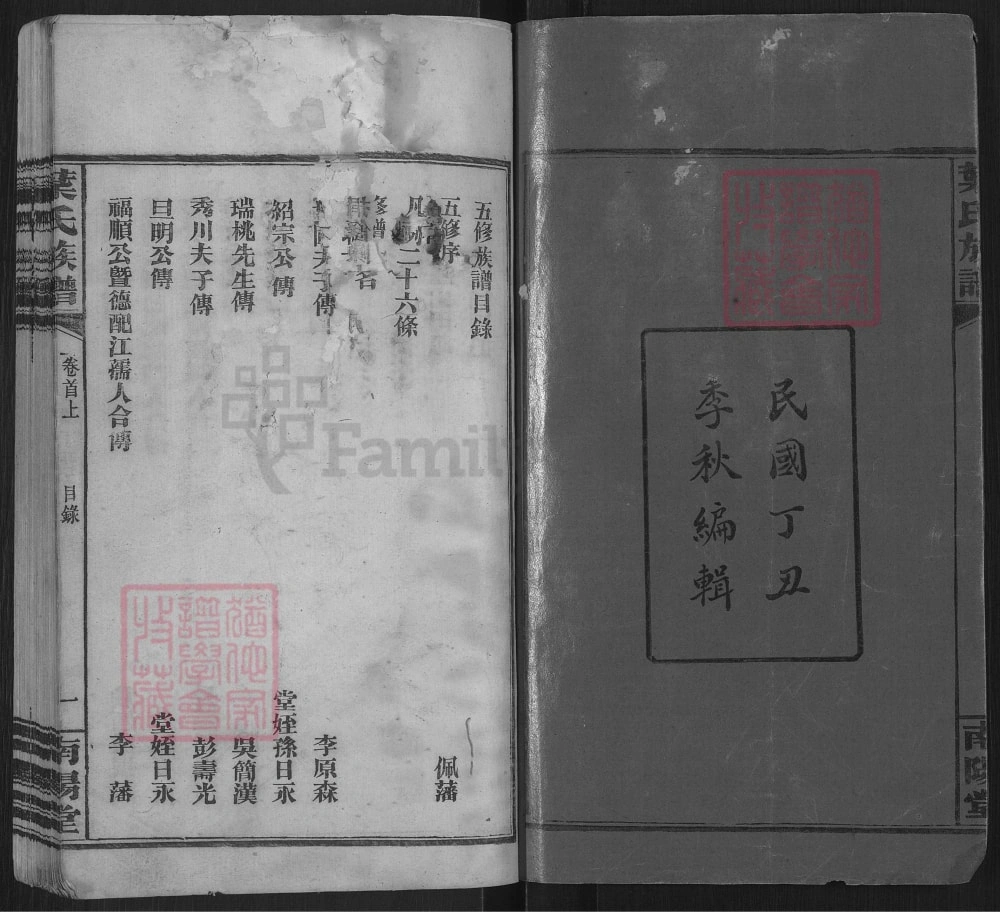 葉氏族譜
民國丁丑
季秋編輯
南陽堂
五修族譜目錄
五修序 佩藩
凡例二十六條
修譜名
夫子傳 李原森
紹宗公傳 堂姪孫日永
瑞桃先生傳 吳簡漢
秀川夫子傳 彭壽光
旦明公傳 堂姪日永
福順公暨德配江孺人合傳 李藩
葉氏族譜 卷首上 目錄 一 南陽堂
猶他家譜學會收藏
猶他家譜學會收藏
Famil